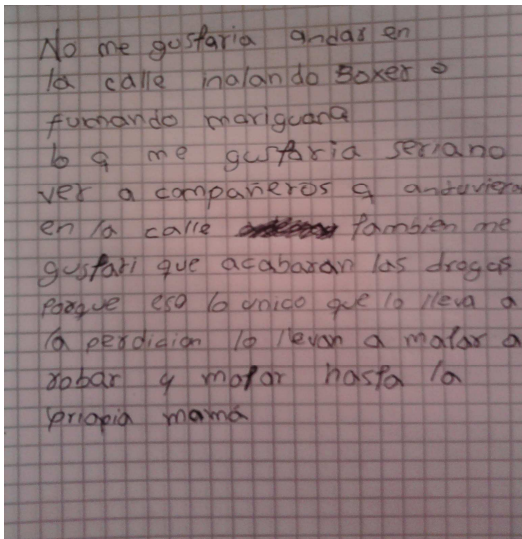 No me gustaria andar en
la calle inalando Boxer o
fumando mariguana
lo q me gustaria seria no
ver a compañeros q anduviera
en la calle tambien me
gustari que acabaran las drogas
porque eso lo unico que lo lleva a
la perdicion lo llevan a matar a
robar y matar hasta la
propia mamá